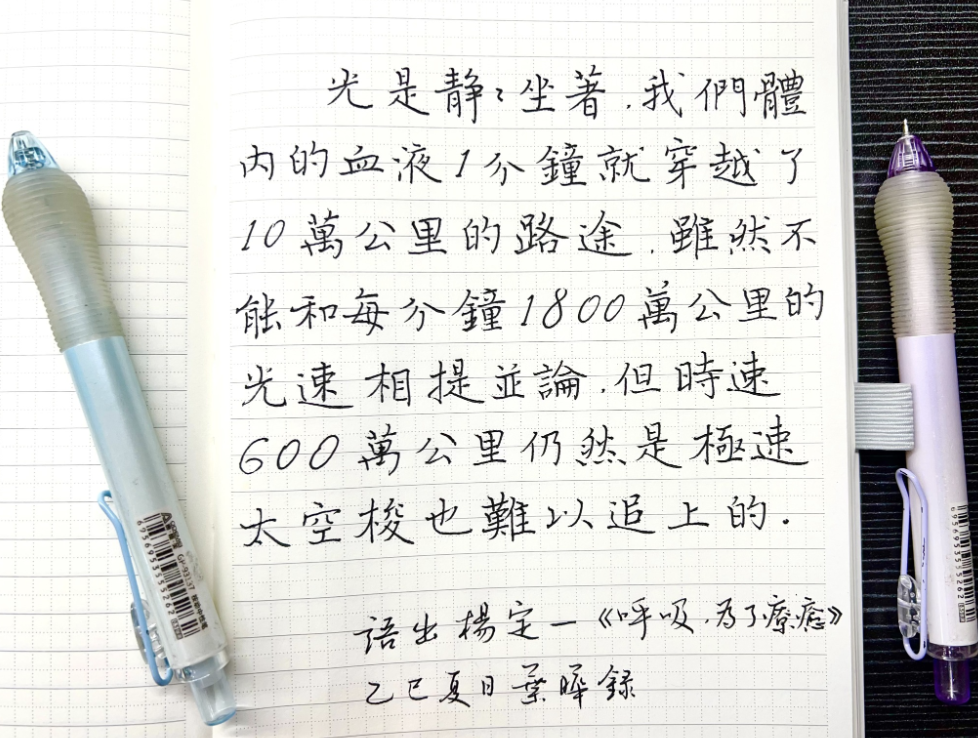 光是静〻坐著，我們體
內的血液1分鐘就穿越了
10萬公里的路途，雖然不
能和每分鐘1800萬公里的
光速相提並論，但時速
600萬公里仍然是極速
太空梭也難以追上的．
語出楊定一《呼吸，為了療癒》
乙巳夏日葉曄録
6956953555262
GP-93137
6956953555262